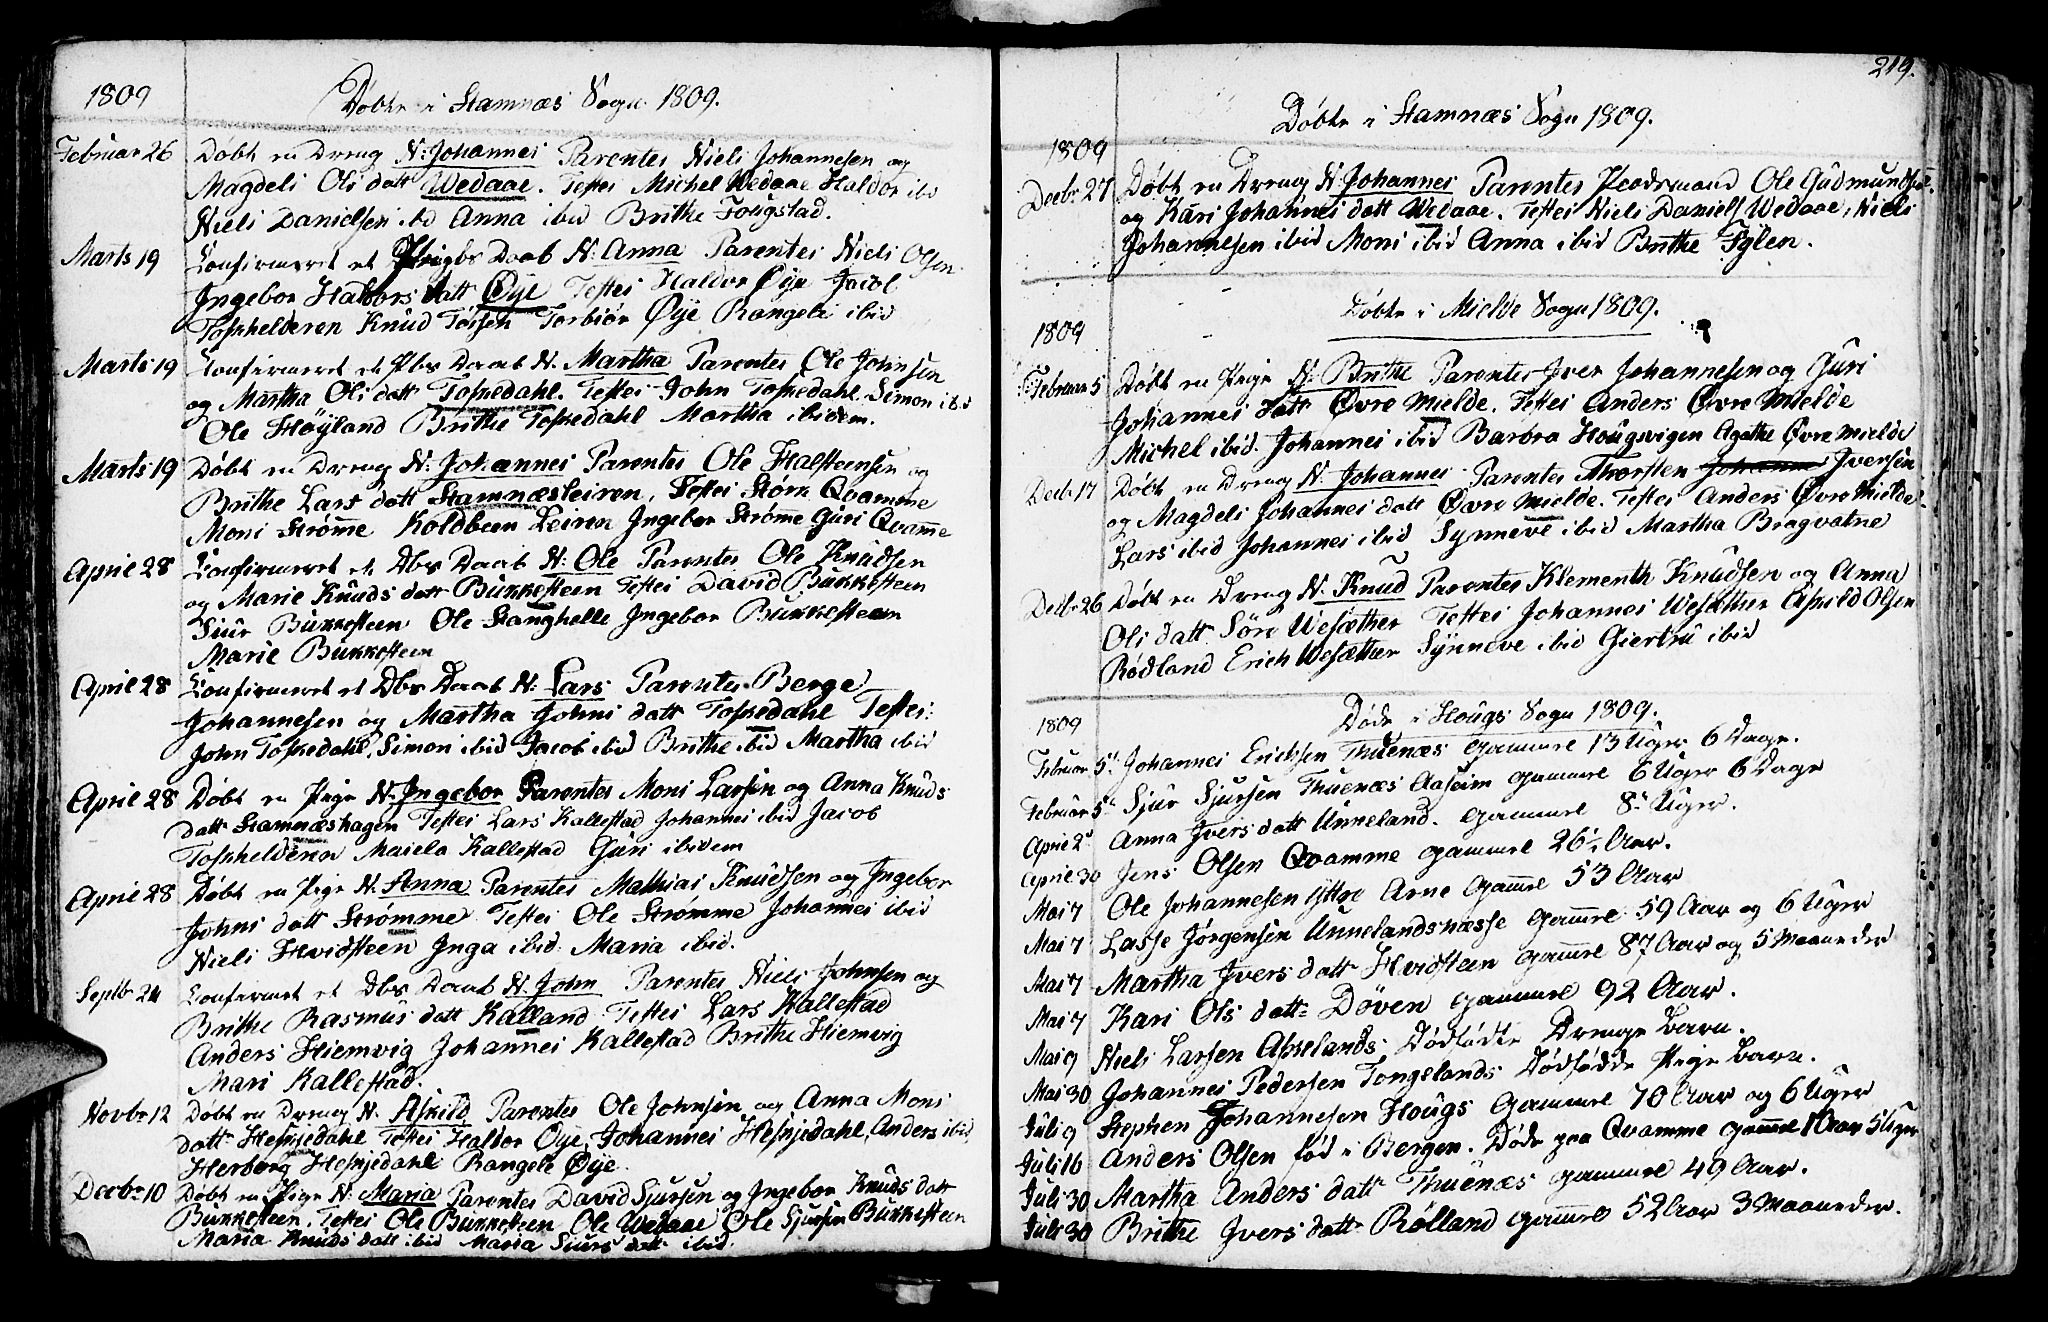 1809
Døbte i Stamnæs Sogn 1809.
Februar 26 Døbt en Dreng N: Johannes Parentes Niels Johannesen og
Magdeli Ols datt Wedaae. Testes Michel Wedaae Haldor ibd
Niels Danielsen ibd Anna ibid Brithe Fougstad.
Marts 19 Confirmeret et Pigebs Daab N: Anna Parentes Niels Olsen
Ingebor Haldors datt Øye Testes Haldor Øye Jacob
Toskhelderen Knud Torbiør Øye Rangele ibid
Marts 19 Confirmeret et Pbs Daab N. Martha Parentes Ole Johnsen
og Martha Ols datt Toskedahl. Testes John Toskedahl Simon ibd
Ole Høyland Brithe Toskedahl Martha ibidem.
Marts 19 Døbt en Dreng N: Johannes Parentes Ole Halsteensen og
Brithe Lars datt Stamnæsleiren, Testes Størk Qvamme
Moni Strømme Koldbeen Leiren Ingebor Strømme Guri Qvamme
April 28 Confirmeret et Dbs Daab N: Ole Parentes Ole Knudsen
og Marie Knuds datt Bukkesteen Testes David Bukkesteen
Siur Bukkesteen Ole Stanghelle Ingebor Bukkesteen
Marie Bukkesteen
April 28 Confirmeret et Dbs Daab N: Lars Parentes Berge
Johannesen og Martha Johns datt Toskedahl Testes:
John Toskedahl, Simon ibid Jacob ibid Brithe ibid Martha ibid
April 28 Døbt en Pige N: Ingebor Parentes Moni Larsen og Anna Knuds
datt Stamnæshagen Testes Lars Kallestad Johannes ibid Jacob
Toskhelderen Maiela Kallestad Guri ibidem
April 28 Døbt en Pige N. Anna Parentes Mathias Knudsen og Ingebor
Johns datt Strømme. Testes Ole Strømme Johannes ibid
Niels Hvidsteen Inga ibid. Maria ibid.
Septb 24 Confirmet et Dbs Daab N. John Parentes Niels Johnsen og
Brithe Rasmus datt Kalland Testes Lars Kallestad
Anders Hiemvig Johannes Kallestad Brithe Hiemvig
Mari Kallestad.
Novbr 12 Døbt en Dreng N. Askild Parentes Ole Johnsen og Anna Mons
datt Hesjedahl Testes Haldor Øye, Johannes Hesjedahl, Anders ibid,
Herborg Hesjedahl Rangele Øye.
Decbr 10 Døbt en Pige N. Maria Parentes David Sjursen og Ingebor Knuds datt
Bukkesteen. Testes Ole Bukkesteen Ole Wedaae Ole Sjursen Bukkesteen
Maria Knuds datt ibid Maria Siurs datt ibid.
219.
Døbte i Stamnæs Sogn 1809.
1809
Decbr 27 Døbt en Dreng N: Johannes Parentes Ole Gudmundsen
og Kari Johannes datt Wedaae. Testes Niels Daniels Wedaae, Niels
Johannesen ibid Moni ibid Anna ibid Brithe Fylen.
Døbte i Mielde Sogn 1809.
1809
Februar 5 Døbt en Pige N: Brithe Parentes Iver Johannesen og Guri
Johannes datt Øvre Mielde. Testes Anders Øvre Mielde
Michel ibid. Johannes ibid Barbro Hougsvigen Agathe Øvre Mielde
Decb 17 Døbt en Dreng N. Johannes Parentes Thorsten Johannes Iversen
og Magdeli Johannes datt Øvre Mielde. Testes Anders Øvre Mielde
Lars ibid Johannes ibid Synneve ibid Martha Bragvatne
Decb 26 Døbt en Dreng N. Knud Parentes Klementh Knudsen og Anna
Ols datt Søre Wesæther Testes Johannes Wesæther Askild Olsen
Rødland Erich Wesæther Synneve ibid Giertru ibid
1809 Døde i Hougs Sogn 1809.
Februar 5 Johannes Erichsen Thuenæs gammel 13 Uger 6 Dage.
Februar 5 Sjur Sjursen Thuenæs Aaseim gammel 6 Uger 6 Dage
April 2 Anna Ivers datt Unneland. gammel 8 Uger.
April 30 Jens Olsen Qvamme gammel 26½ Aar.
Mai 7 Ole Johannesen Yttre Arne gammel 53 Aar
Mai 7 Lasse Jørgensen Unnelandsnæsse gammel 59 Aar og 6 Uger
Mai 7 Martha Ivers datt Hvidsteen gammel 87 Aar og 5 Maaneder
Mai 7 Kari Ols datt Døven gammel 92 Aar.
Mai 9 Niels Larsen Asselands Dødfødte Drenge Barn.
Mai 30 Johannes Pedersen Tongelands Dødfødde Pige Barn.
Juli 9 Stephen Johannesen Hougs gammel 70 Aar og 6 Uger
Juli 16 Anders Olsen fød i Bergen. Døde paa Qvamme gammel 1 Aar 5 Uger
Juli 30 Martha Anders datt Thuenæs gammel 49 Aar.
Juli 30 Brithe Ivers datt Rølland gammel 52 Aar 3 Maaneder.